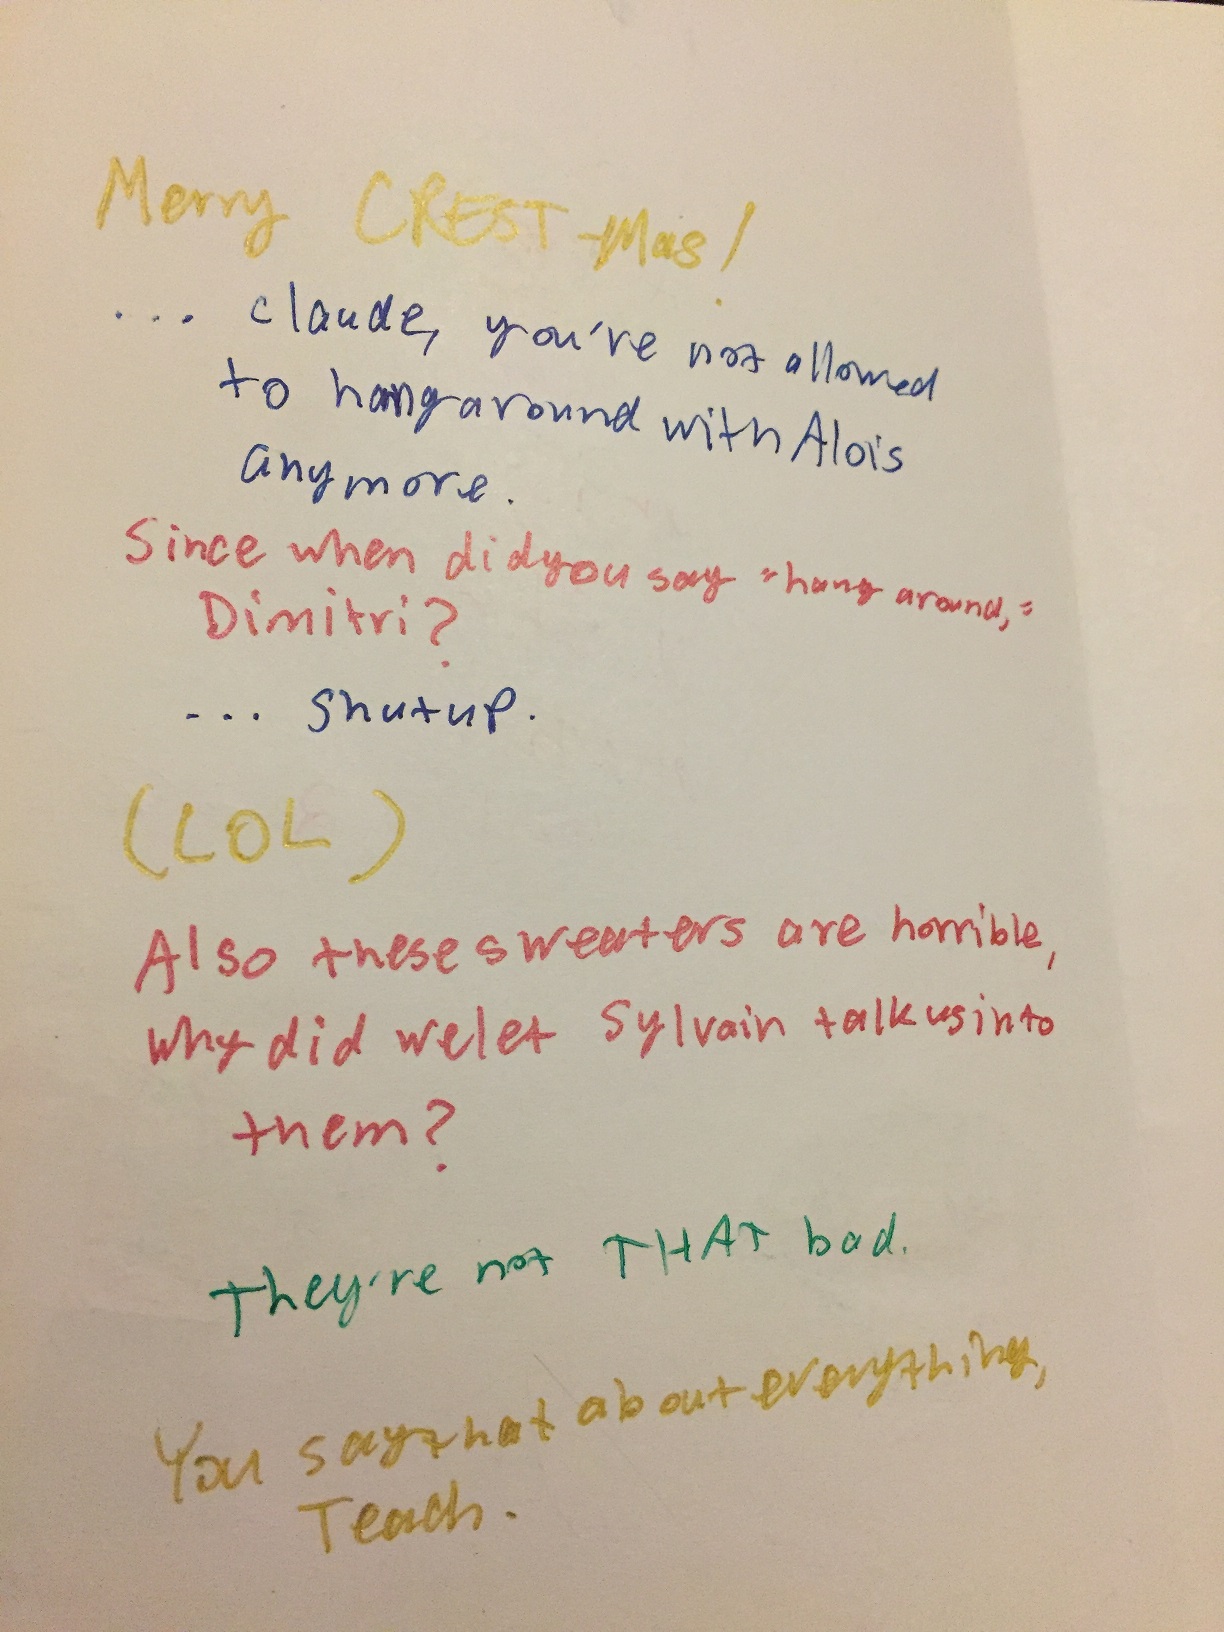 Merry CREST-Mas!
... Claude, you're not allowed
to hang around with Alois
anymore.
Since when did you say "hang around,"
Dimitri?
... shut up.
(LOL)
Also these sweaters are horrible,
why did we let Sylvain talk us into
them?
They're not THAT bad.
You say that about everything,
Teach.